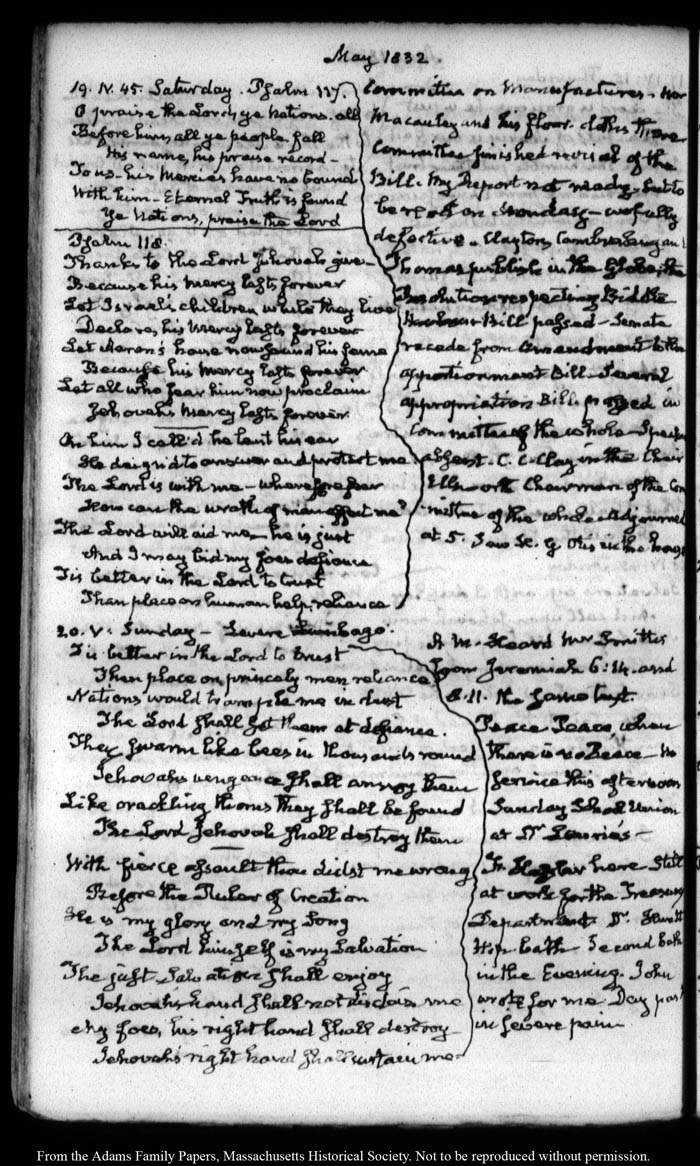 May 1832.
19. IV. 45. Saturday. Psalm 117.
O praise the Lord, ye Nations. all
Before him, all ye people fall
His name, his praise record—
To us his Mercies have no bound
With him—Eternal Truth is found
Ye Nations, praise the Lord
Psalm 118.
Thanks to the Lord Jehovah give—
Because his mercy lasts forever
Let Israel's children while they live
Declare, his Mercy lasts forever
Let Aaron's house now sound his fame
Because his Mercy lasts forever
Let all who fear him now proclaim
Jehovah's Mercy lasts forever.
On him I call'd he lent his ear
He deign'd to answer and protect me
The Lord is with me—wherefore fear
How can the wrath of man affect me?
The Lord will aid me—he is just
And I may bid my foes defiance
Tis better in the Lord to trust
Than place on human help, reliance
Committee on Manufactures.
Macauley and his floor-cloths there
Committee finished revisal of the
Bill. My Report not ready—but to
be on Monday—wofully
defective. Clayton, Cambreleng and
Thomas publish in the Globe, the
Resolution respecting Biddle
Harbour Bill passed—Senate
recede from amendment to the
apportionment Bill. Several
appropriation Bills passed in
Committee of the whole—Speaker
absent. C. C. Clay in the Chair
Ellsworth Chairman of the Com
mittee of the whole. Adjourned
at 5. Saw in the house
20. V: Sunday—Severe Lumbago.
Tis better in the Lord to trust
Then place on princely men reliance
Nations would trample me in dust
The Lord shall set them at defiance.
They swarm like bees in thousands round
Jehovah's vengeance shall annoy them
Like crackling thorns they shall be found
The Lord Jehovah shall destroy them
With fierce assault thou didst me wrong
Before the Ruler of Creation
He is my glory and my song
The Lord himself is my Salvation
The just Salvation shall enjoy
Jehovah's hand shall not disdain me
My foes, his right hand shall destroy
Jehovah's right hand shall sustain me
A.M. Heard Mr Smith
from Jeremiah 6:14. and
8.11. the same text.
Peace Peace, when
there is no Peace—No
Service this afternoon
Sunday School Union
at Dr Laurie's—
here still
at work for the Treasury
Department. Dr. Sewall
Hip bath Second bath
in the Evening. John
wrote for me Day past
in severe pain
From the Adams Family Papers, Massachusetts Historical Society. Not to be reproduced without permission.